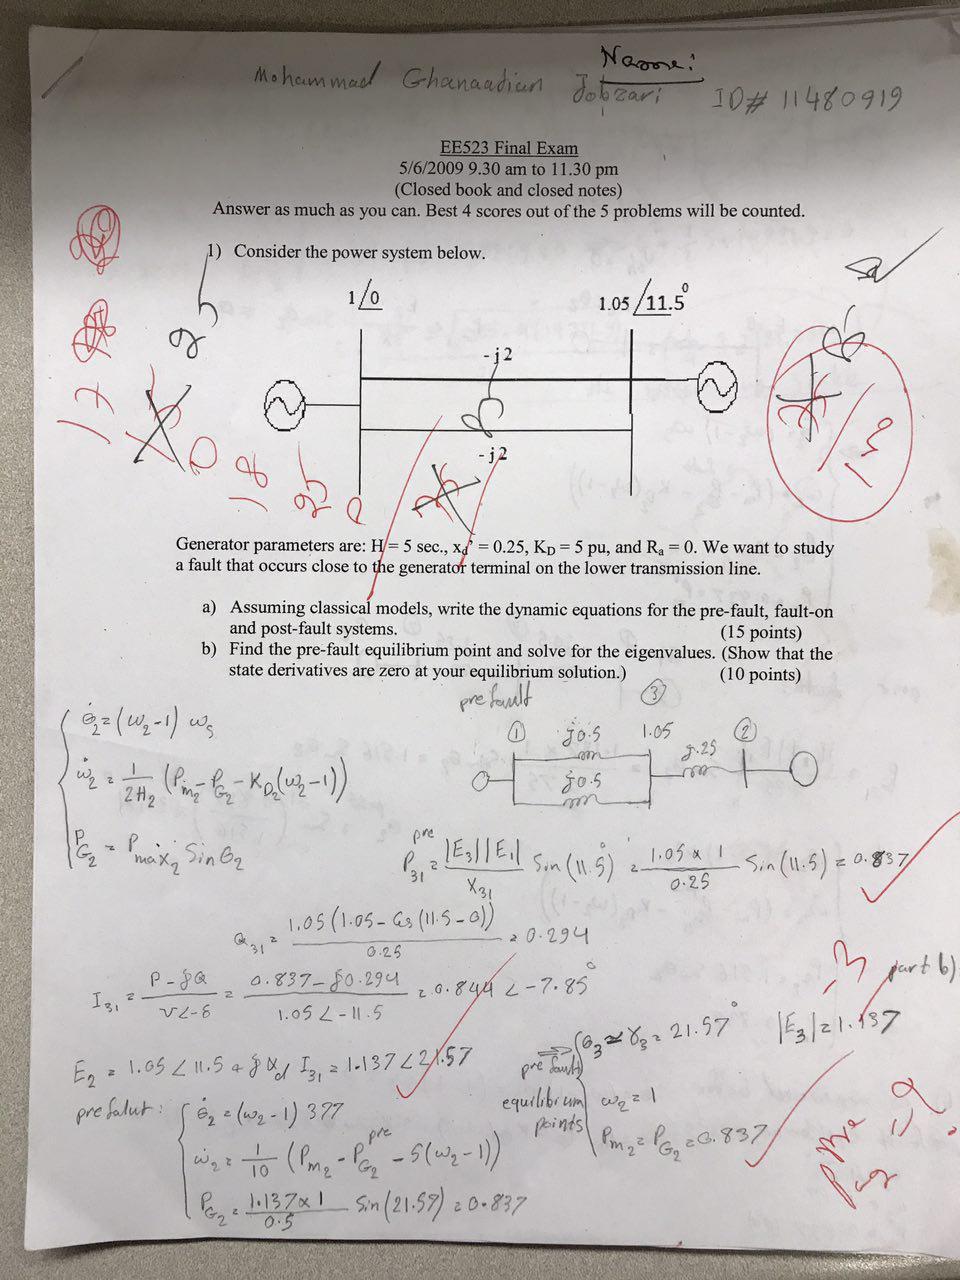 Name:
Mohammad Ghanaadian Jobzari ID# 11480919
EE523 Final Exam
5/6/2009 9.30 am to 11.30 pm
(Closed book and closed notes)
Answer as much as you can. Best 4 scores out of the 5 problems will be counted.
1) Consider the power system below.
1/0
1.05 /11.5°
-j2
-j2
Generator parameters are: H = 5 sec., xd' = 0.25, KD = 5 pu, and Ra = 0. We want to study
a fault that occurs close to the generator terminal on the lower transmission line.
a) Assuming classical models, write the dynamic equations for the pre-fault, fault-on
and post-fault systems. (15 points)
b) Find the pre-fault equilibrium point and solve for the eigenvalues. (Show that the
state derivatives are zero at your equilibrium solution.) (10 points)
prefault
① j0.5 ③ 1.05 j.25 ②
j0.5
θ̇2 = (ω2-1) ωs
ω̇2 = 1/2H2 (Pm2 - PG2 - KD2(ω2-1))
PG2 = Pmax2 Sin θ2
P31^pre = |E3||E1|/X31 Sin(11.5°) = 1.05 x 1/0.25 Sin(11.5) = 0.837
Q31 = 1.05(1.05 - Cos(11.5-0))/0.25 = 0.294
I31 = P-jQ/V∠-δ = 0.837-j0.294/1.05∠-11.5 = 0.844∠-7.85°
part b)
E2 = 1.05∠11.5 + jXd I31 = 1.137∠21.57
⇒ θ3 ≃ γ3 = 21.57° |E3| = 1.137
prefault
equilibrium
points
ω2 = 1
Pm2 = PG2 = 0.837
prefalut:
θ̇2 = (ω2-1) 377
ω̇2 = 1/10 (Pm2 - PG2^pre - 5(ω2-1))
PG2 = 1.137x1/0.5 Sin(21.57) = 0.837